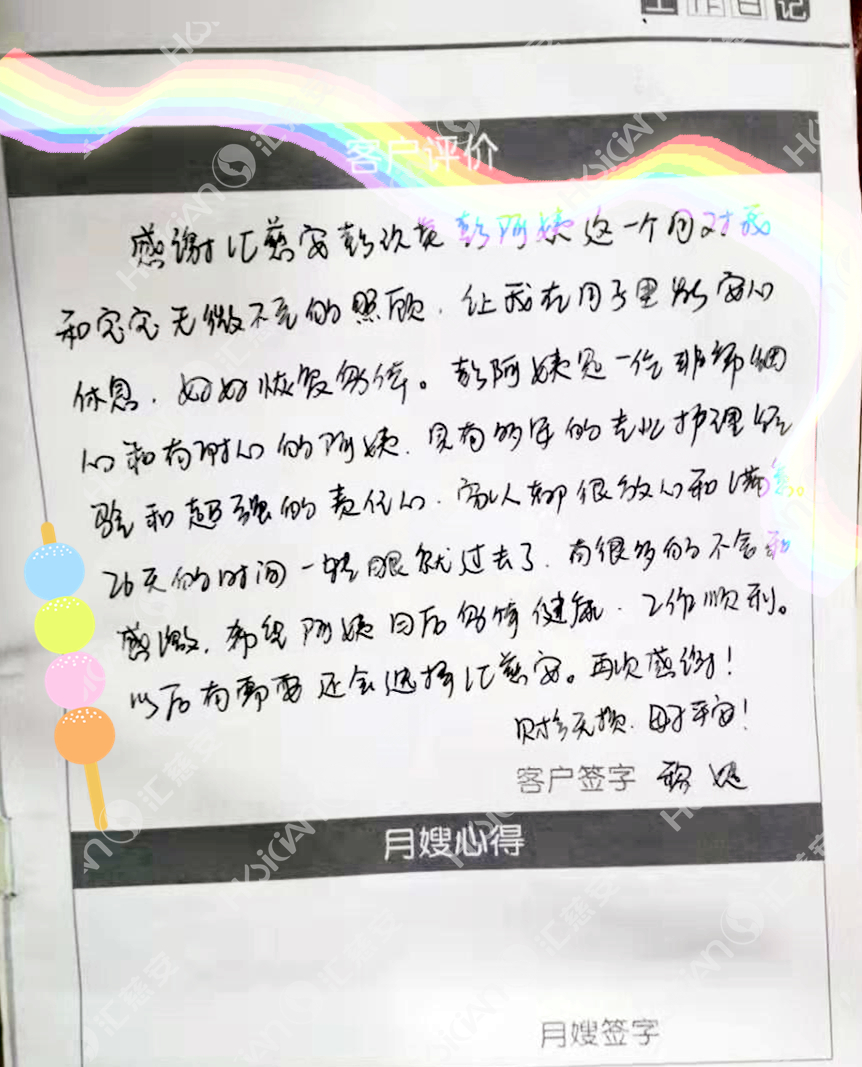 工作日记
客户评价
感谢汇慈安彭次英彭阿姨这一个月对我
和宝宝无微不至的照顾，让我在月子里能安心
休息，好好恢复身体。彭阿姨是一位非常细
心和有耐心的阿姨，具有多年的专业护理经
验和超强的责任心，家人都很放心和满意。
26天的时间一转眼就过去了，有很多的不舍和
感激，希望阿姨日后身体健康，工作顺利。
以后有需要还会选择汇慈安。再次感谢！
财务无损，母子平安！
客户签字
月嫂心得
月嫂签字
HUICIAN 汇慈安